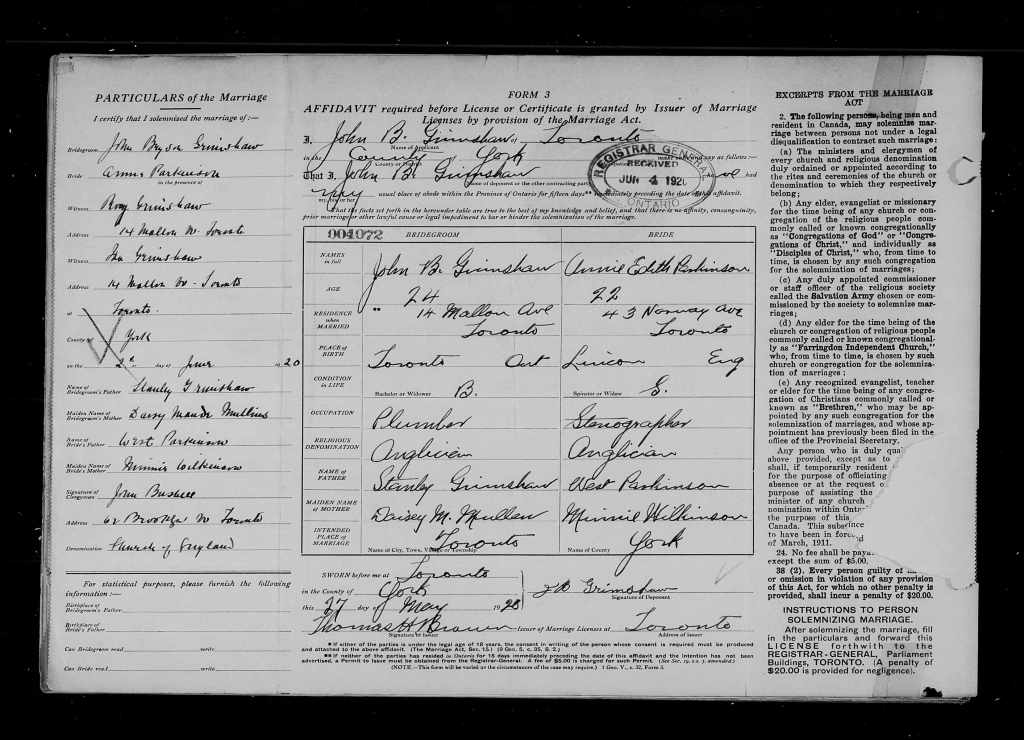 PARTICULARS of the Marriage
I certify that I solemnised the marriage of :—
Bridegroom John Byson Grimshaw
Bride Annie Parkinson
in the presence of
Witness Roy Grimshaw
Address 14 Mallon Av Toronto
Witness Grimshaw
Address 14 Mallon Av - Toronto
at Toronto.
County of York
on the 2nd day of June 1920
Name of Bridegroom's Father Stanley Grimshaw
Maiden Name of Bridegroom's Mother Daisy Maude Mullins
Name of Bride's Father West Parkinson
Maiden Name of Bride's Mother Minnie Wilkinson
Signature of Clergyman John Bushell
Address 62 Av Toronto
Denomination Church of England
For statistical purposes, please furnish the following
information :—
Birthplace of Bridegroom's Father
Birthplace of Bride's Father
Can Bridegroom read write
Can Bride read write
FORM 3
AFFIDAVIT required before License or Certificate is granted by Issuer of Marriage
Licenses by provision of the Marriage Act.
I, John B. Grimshaw of Toronto
Name of Applicant
in the County York say as follows :—
County or District
That I, John B. Grimshaw had
Name of deponent or the other contracting party
my usual place of abode within the Province of Ontario for fifteen days** immediately preceding the date of this affidavit.
my, his or her
REGISTRAR GENERAL
RECEIVED
JUN 4 1920
ONTARIO
That the facts set forth in the hereunder table are true to the best of my knowledge and belief, and that there is no affinity, consanguinity,
prior marriage or other lawful cause or legal impediment to bar or hinder the solemnization of the marriage.
001072 BRIDEGROOM BRIDE
NAMES in full John B. Grimshaw Annie Edith Parkinson
AGE 24 22
RESIDENCE when MARRIED ** 14 Mallon Ave Toronto 43 Norway Ave Toronto
PLACE of BIRTH Toronto Ont Lincon Eng
CONDITION in LIFE Bachelor or Widower B. Spinster or Widow S.
OCCUPATION Plumber Stenographer
RELIGIOUS DENOMINATION Anglican Anglican
NAME of FATHER Stanley Grimshaw West Parkinson
MAIDEN NAME of MOTHER Daisey M. Mullen Minnie Wilkinson
INTENDED PLACE of MARRIAGE Toronto York
Name of City, Town, Village or Township Name of County
SWORN before me at Toronto
in the County of York
this 27 day of May 1920
J B Grimshaw
Signature of Deponent
Thomas H Brown Issuer of Marriage Licenses at Toronto
Signature of Issuer Address of Issuer
*If either of the parties is under the legal age of 18 years, the consent in writing of the person whose consent is required must be produced
and attached to the above affidavit. (The Marriage Act, Sec. 15.) (9 Geo. 5, c. 35, S. 2.)
**If neither of the parties has resided in Ontario for 15 days immediately preceding the date of this affidavit and the intention has not been
advertised, a Permit to issue must be obtained from the Registrar-General. A fee of $5.00 is charged for such Permit.
(NOTE.—This form will be varied or the circumstances of the case may require.) 1 Geo. V., c. 32, Form 3.
EXCERPTS FROM THE MARRIAGE
ACT
2. The following persons, being men and
resident in Canada, may solemnize mar-
riage between persons not under a legal
disqualification to contract such marriage:
(a) The ministers and clergymen of
every church and religious denomination
duly ordained or appointed according to
the rites and ceremonies of the church or
denomination to which they respectively
belong;
(b) Any elder, evangelist or missionary
for the time being of any church or con-
gregation of the religious people com-
monly called or known congregationally
as "Congregations of God" or "Congre-
gations of Christ," and individually as
"Disciples of Christ," who, from time to
time, is chosen by any such congregation
for the solemnization of marriages;
(c) Any duly appointed commissioner
or staff officer of the religious society
called the Salvation Army chosen or com-
missioned by the society to solemnize mar-
riages;
(d) Any elder for the time being of the
church or congregation of religious people
commonly called or known congregational-
ly as "Farringdon Independent Church,"
who, from time to time, is chosen by such
church or congregation for the solemniza-
tion of marriages ;
(e) Any recognized evangelist, teacher
or elder for the time being of any congre-
gation of Christians commonly called or
known as "Brethren," who may be ap-
pointed by any such congregation for the
solemnization of marriages, and whose ap-
pointment has previously been filed in the
office of the Provincial Secretary.
Any person who is duly
above provided, except as to
shall, if temporarily resident
for the purpose of officiating
absence or at the request o
purpose of assisting the
minister of any church
nomination within
the purpose of this
Canada. This
to have been in
of March, 1911.
24. No fee shall be
except the sum of $5.00.
38 (2). Every person guilty of
or omission in violation of any provision
of this Act, for which no other penalty is
provided, shall incur a penalty of $20.00.
INSTRUCTIONS TO PERSON
SOLEMNIZING MARRIAGE.
After solemnizing the marriage, fill
in the particulars and forward this
LICENSE forthwith to the
REGISTRAR-GENERAL, Parliament
Buildings, TORONTO. (A penalty of
$20.00 is provided for negligence).